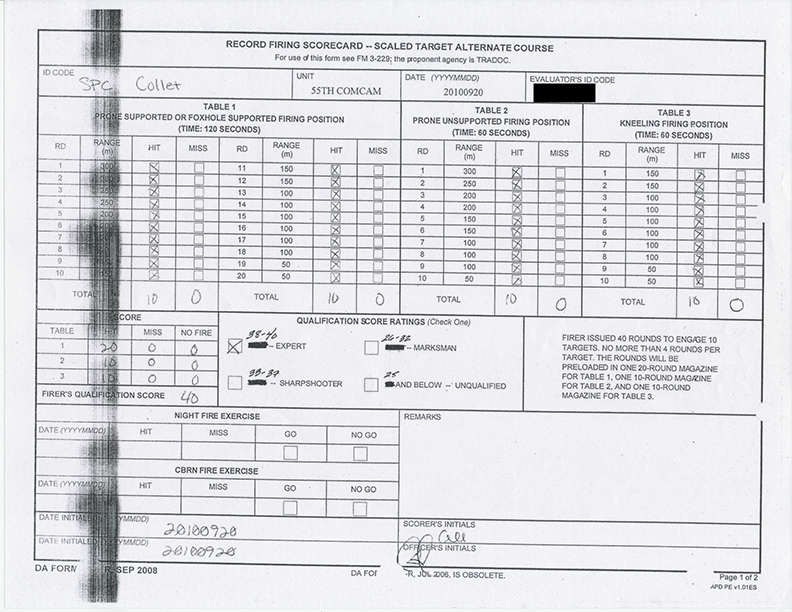 RECORD FIRING SCORECARD -- SCALED TARGET ALTERNATE COURSE
For use of this form see FM 3-229; the proponent agency is TRADOC.
ID CODE
SPC Collet
UNIT
55TH COMCAM
DATE (YYYYMMDD)
20100920
EVALUATOR'S ID CODE
TABLE 1
PRONE SUPPORTED OR FOXHOLE SUPPORTED FIRING POSITION
(TIME: 120 SECONDS)
RD RANGE (m) HIT MISS RD RANGE (m) HIT MISS
1 300 11 150
2 12 150
3 13 100
4 250 14 100
5 200 15 100
6 16 100
7 17 100
8 18 100
9 19 50
10 20 50
TOTAL 10 0 TOTAL 10 0
TABLE 2
PRONE UNSUPPORTED FIRING POSITION
(TIME: 60 SECONDS)
RD RANGE (m) HIT MISS
1 300
2 250
3 200
4 200
5 150
6 150
7 100
8 100
9 100
10 50
TOTAL 10 0
TABLE 3
KNEELING FIRING POSITION
(TIME: 60 SECONDS)
RD RANGE (m) HIT MISS
1 150
2 150
3 100
4 100
5 100
6 100
7 100
8 100
9 50
10 50
TOTAL 10 0
SCORE
TABLE HIT MISS NO FIRE
1 20 0 0
2 10 0 0
3 10 0 0
FIRER'S QUALIFICATION SCORE 40
QUALIFICATION SCORE RATINGS (Check One)
38-40
-- EXPERT
26-32
-- MARKSMAN
33-37
-- SHARPSHOOTER
25
AND BELOW -- UNQUALIFIED
FIRER ISSUED 40 ROUNDS TO ENGAGE 10
TARGETS. NO MORE THAN 4 ROUNDS PER
TARGET. THE ROUNDS WILL BE
PRELOADED IN ONE 20-ROUND MAGAZINE
FOR TABLE 1, ONE 10-ROUND MAGAZINE
FOR TABLE 2, AND ONE 10-ROUND
MAGAZINE FOR TABLE 3.
NIGHT FIRE EXERCISE
DATE (YYYYMMDD) HIT MISS GO NO GO
CBRN FIRE EXERCISE
DATE (YYYYMMDD) HIT MISS GO NO GO
REMARKS
DATE INITIALED (YYYYMMDD)
20100920
SCORER'S INITIALS
DATE INITIALED (YYYYMMDD)
20100920
OFFICER'S INITIALS
DA FORM R, SEP 2008
DA FOR -R, JUL 2006, IS OBSOLETE.
Page 1 of 2
APD PE v1.01ES